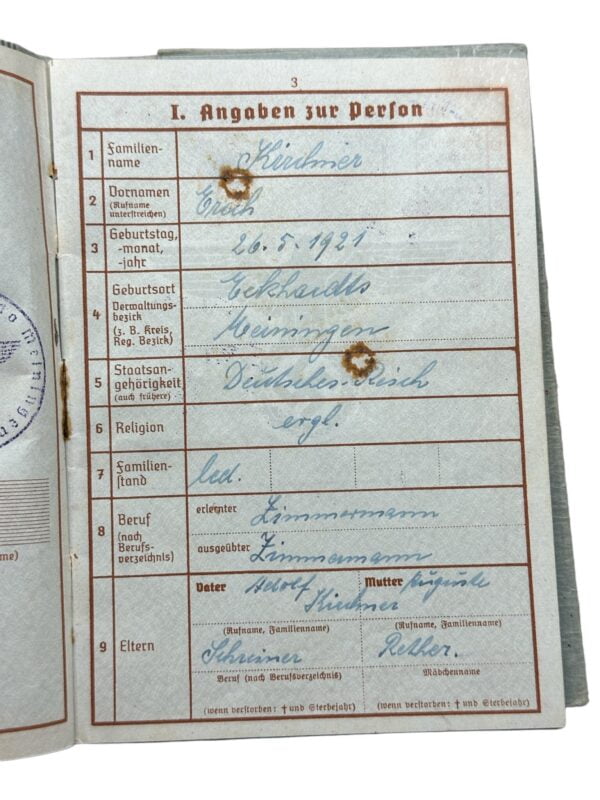 3
I. Angaben zur Person
1 Familien-
name
Kirchner
2 Vornamen
(Rufname
unterstreichen)
Erich
3 Geburtstag,
-monat,
-jahr
26.5.1921
4 Geburtsort
Verwaltungs-
bezirk
(z. B. Kreis,
Reg. Bezirk)
Eckhardts
Meiningen
5 Staatsan-
gehörigkeit
(auch frühere)
Deutsches-Reich
6 Religion
7 Familien-
stand
led.
8 Beruf
(nach
Berufs-
verzeichnis)
erlernter Zimmermann
ausgeübter Zimmermann
9 Eltern
Vater Adolf Mutter Auguste
Kirchner
(Rufname, Familienname) (Rufname, Familienname)
Schreiner
Beruf (nach Berufsverzeichnis) Mädchenname
(wenn verstorben: † und Sterbejahr) (wenn verstorben: † und Sterbejahr)
Meiningen
ame)